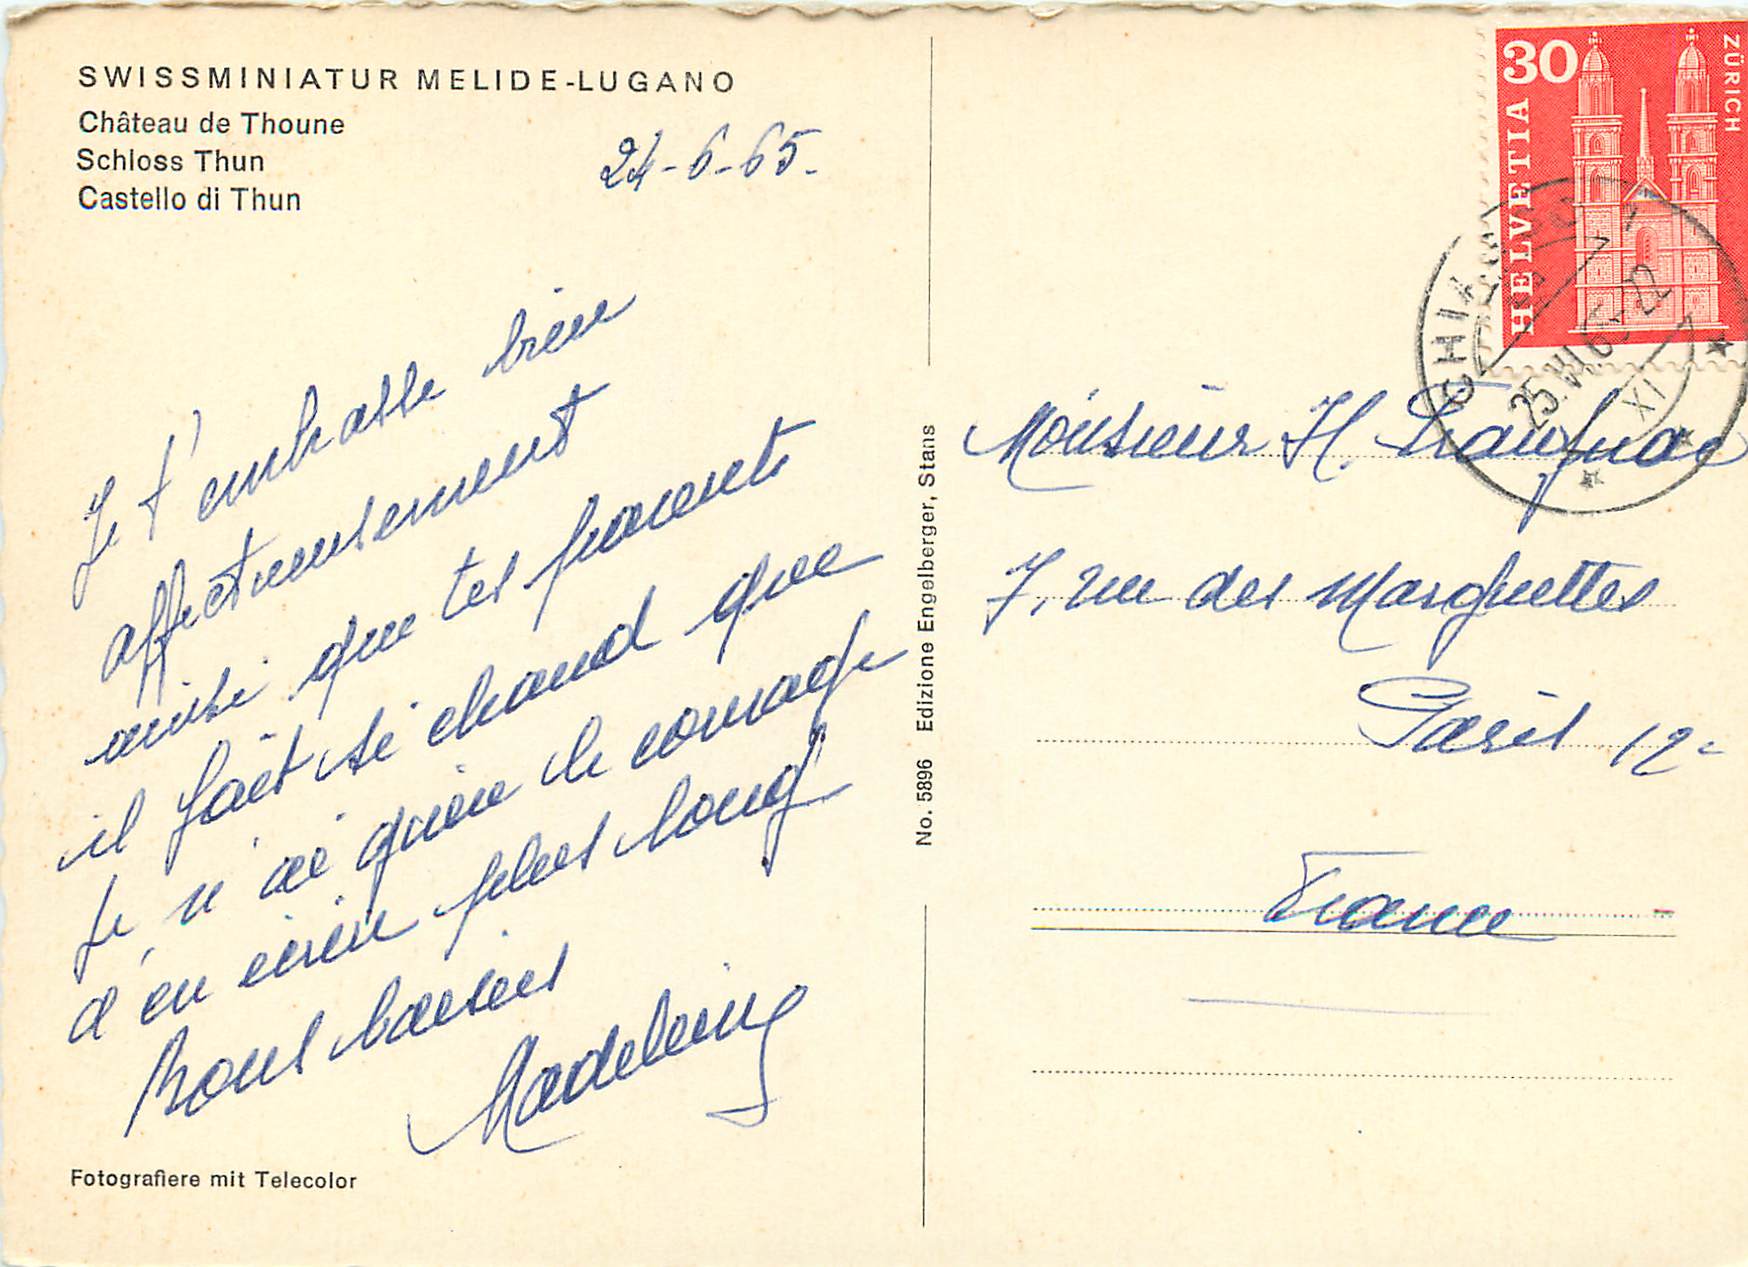 SWISSMINIATUR MELIDE-LUGANO
Château de Thoune
Schloss Thun
Castello di Thun
24-6-65.
Je t'embrasse bien
affectueusement
ainsi que tes parents
il fait si chaud que
je n'ai guère le courage
d'en écrire plus long
Bons baisers
Madeleine
Fotografiere mit Telecolor
No. 5896 Edizione Engelberger, Stans
HELVETIA 30 ZÜRICH
CHIASSO
25.VI.65-22
XI
Monsieur H.
7, rue des Marguettes
Paris 12e
France